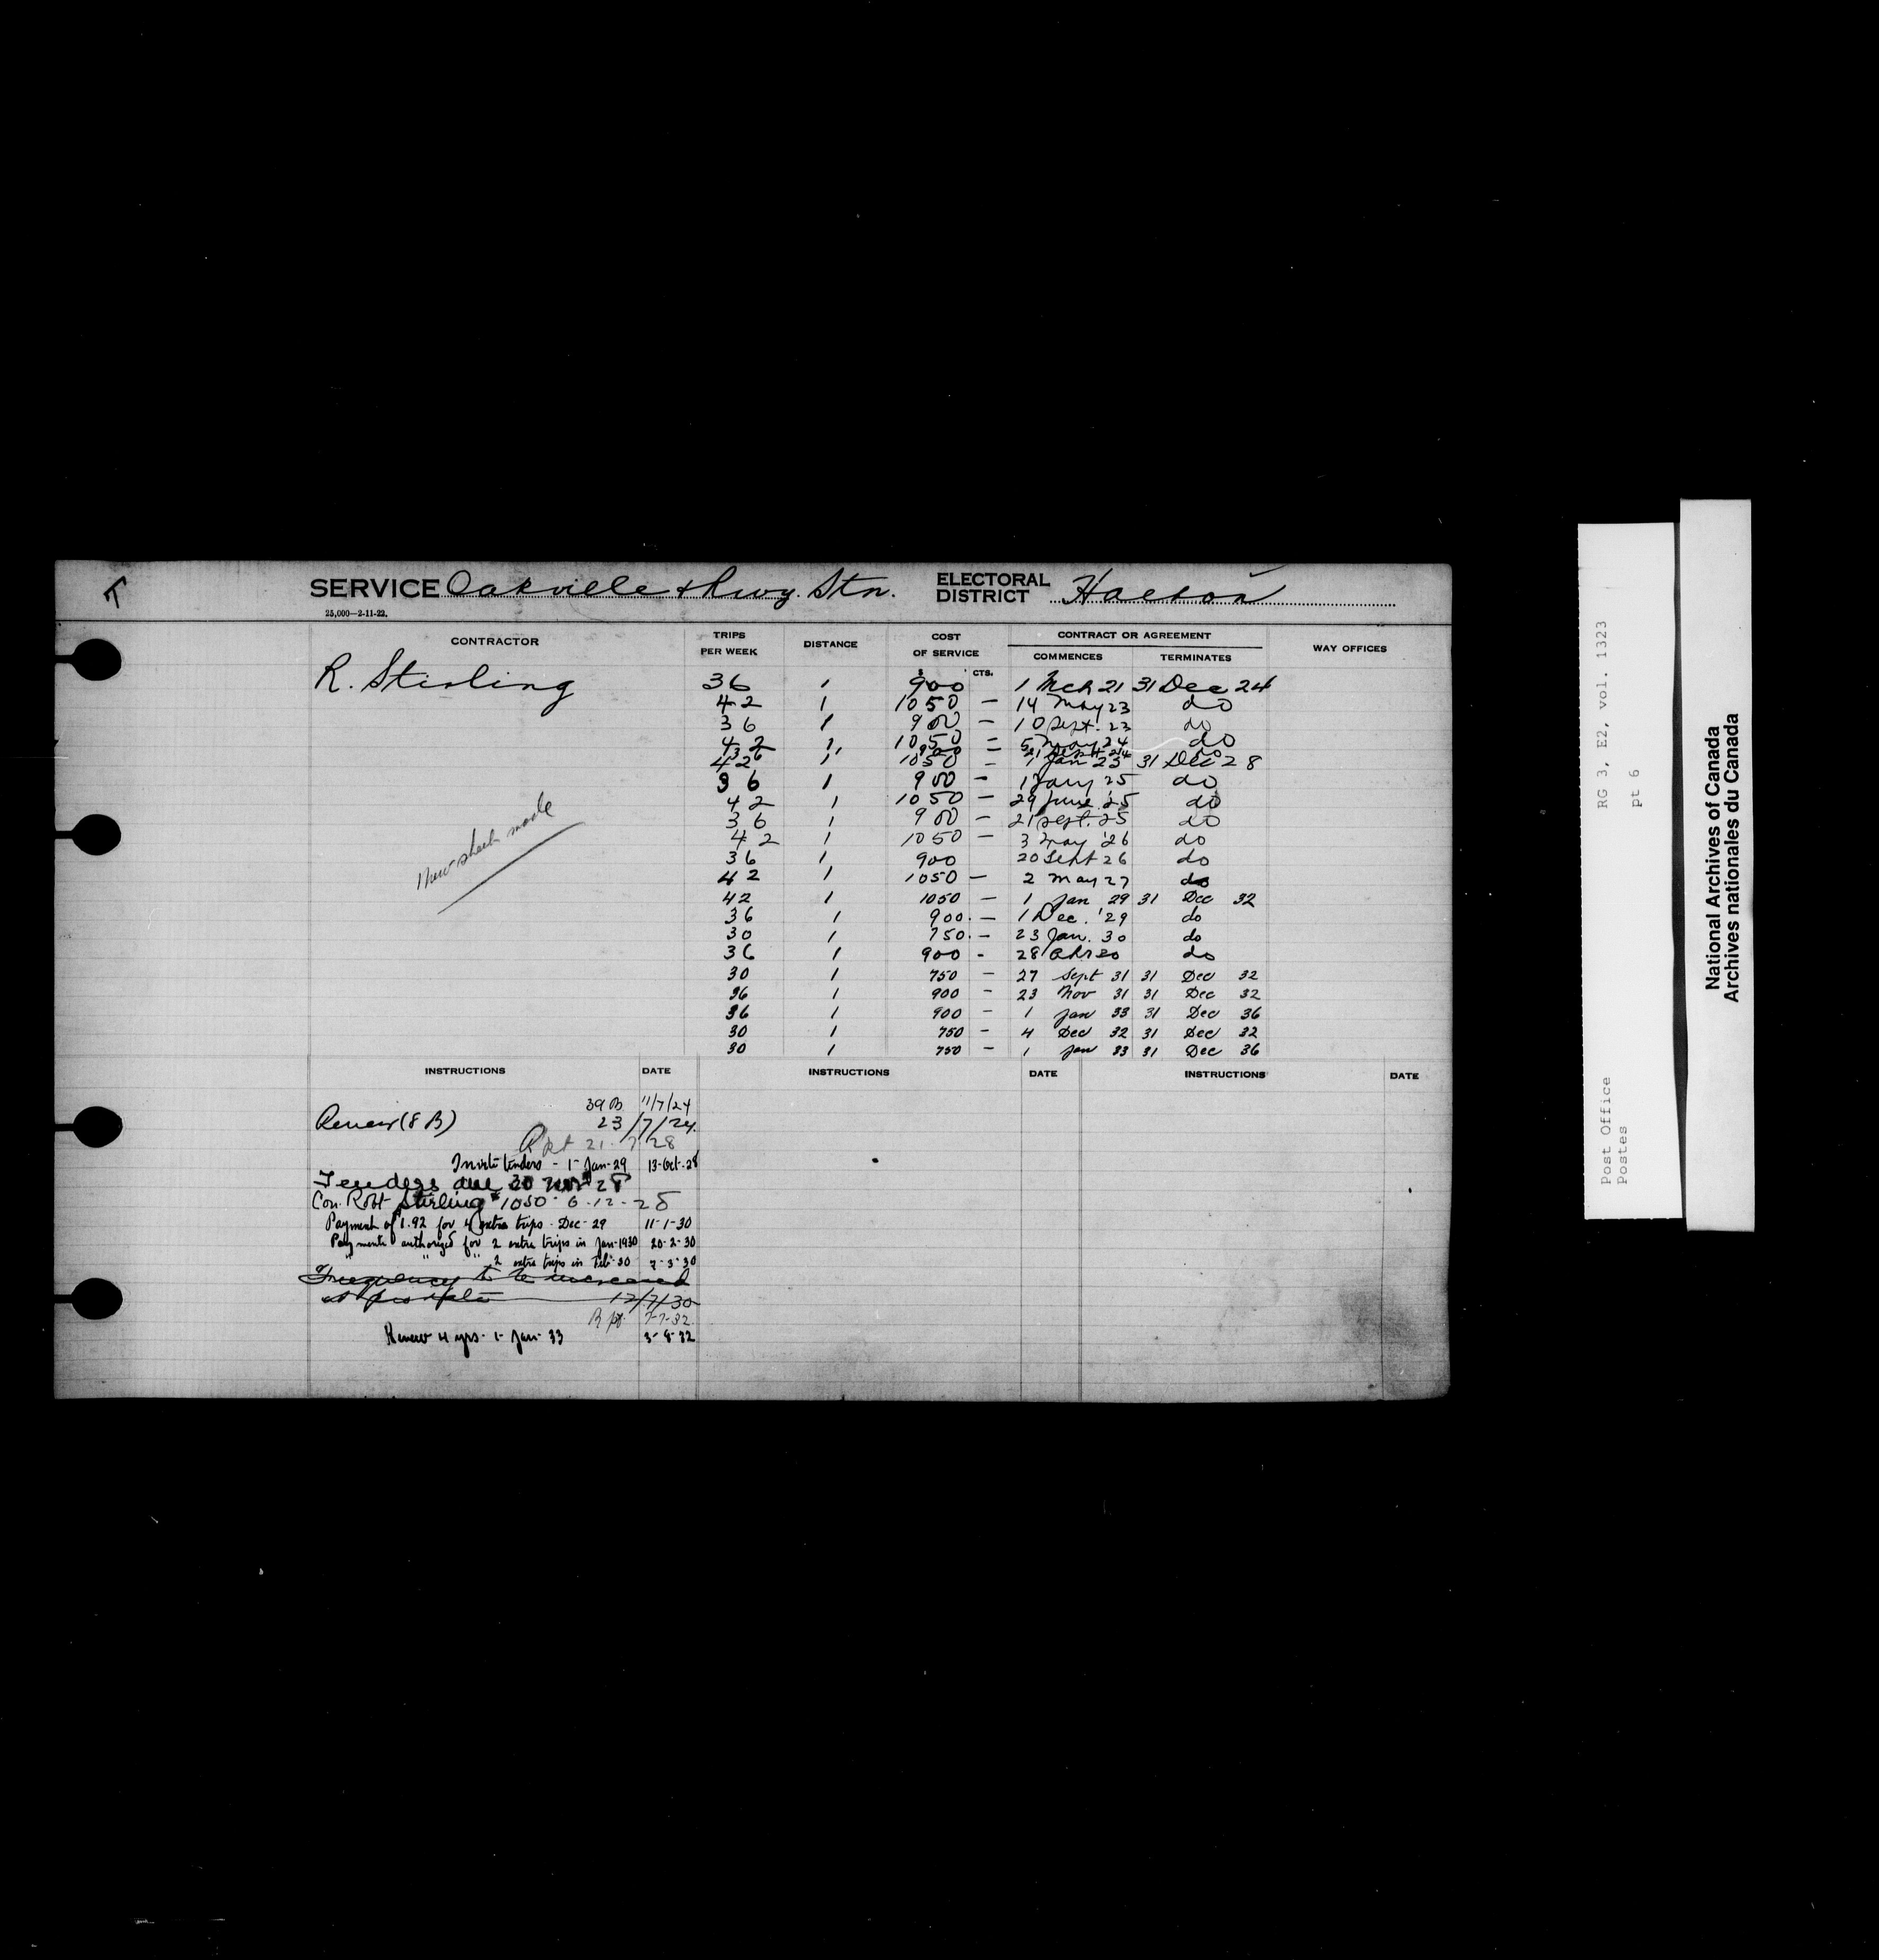 T
SERVICE Oakville & Rwy. Stn. ELECTORAL DISTRICT Halton
25,000—2-11-22.
CONTRACTOR TRIPS PER WEEK DISTANCE COST OF SERVICE CONTRACT OR AGREEMENT WAY OFFICES
COMMENCES TERMINATES
$ CTS.
R. Stirling 36 1 900 1 Mch 21 31 Dec 24
42 1 1050 — 14 May 23 do
36 1 900 — 10 Sept. 23 do
42 1 1050 — 5 May 24 do
36 1 900 — 21 Sept 24 do
42 1 1050 — 1 Jan 25 31 Dec 28
36 1 900 — 1 Jany 25 do
42 1 1050 — 29 June '25 do
36 1 900 — 21 Sept. 25 do
42 1 1050 — 3 May '26 do
36 1 900 20 Sept 26 do
42 1 1050 — 2 May 27 do
42 1 1050 — 1 Jan 29 31 Dec 32
36 1 900. — 1 Dec. '29 do
30 1 750. — 23 Jan. 30 do
36 1 900 - 28 Apr 30 do
30 1 750 — 27 Sept 31 31 Dec 32
36 1 900 — 23 Nov 31 31 Dec 32
36 1 900 — 1 Jan 33 31 Dec 36
30 1 750 — 4 Dec 32 31 Dec 32
30 1 750 — 1 Jan 33 31 Dec 36
New sheet made
INSTRUCTIONS DATE INSTRUCTIONS DATE INSTRUCTIONS DATE
39 B 11/7/24
Renew (8 B) 23/7/24.
Rpt 21-7-28
Invite tenders - 1-Jan-29 13-Oct-28
Tenders due 30 Nov 28
Con. Robt Stirling $1050- 6-12-28
Payment of 1.92 for 4 extra trips - Dec-29 11-1-30
Payments authorized for 2 extra trips in Jan-1930 20-2-30
" " " 2 extra trips in Feb-30 7-3-30
Frequency to be increased
at pro rata 12/7/30
Rpt. 7-7-32.
Renew 4 yrs. 1-Jan-33 3-9-32
Post Office RG 3, E2, vol. 1323
Postes pt 6
National Archives of Canada
Archives nationales du Canada